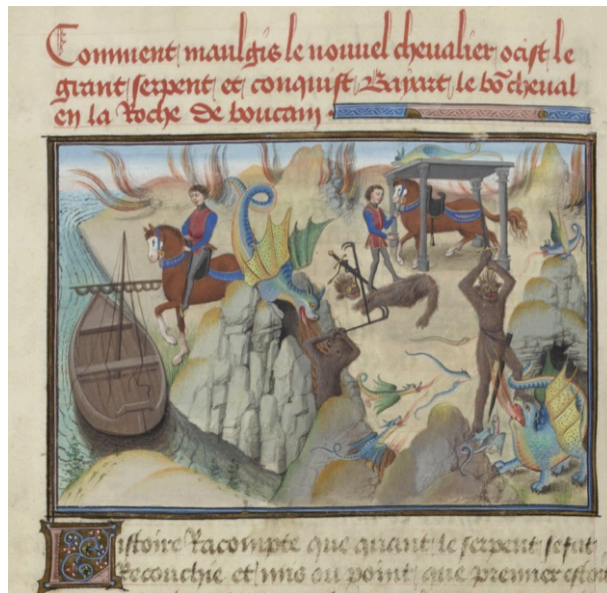 Comment maulgis le nouvel chevalier ocist le
grant serpent et conquist Bayart le bō cheval
en la Roche de boucam
istoire Racompte que quant le serpent se fut
Recouchie et mis ou point que premier estoit